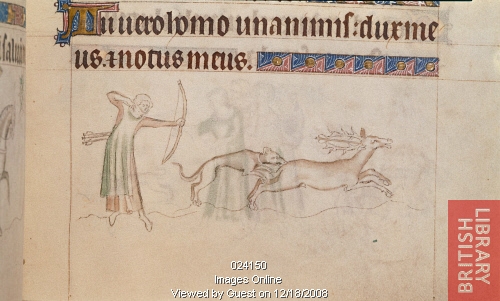 Tu uero homo unanimis: dux me
us. ⁊ notus meus.
024150
Images Online
Viewed by Guest on 12/18/2008
BRITISH
LIBRARY